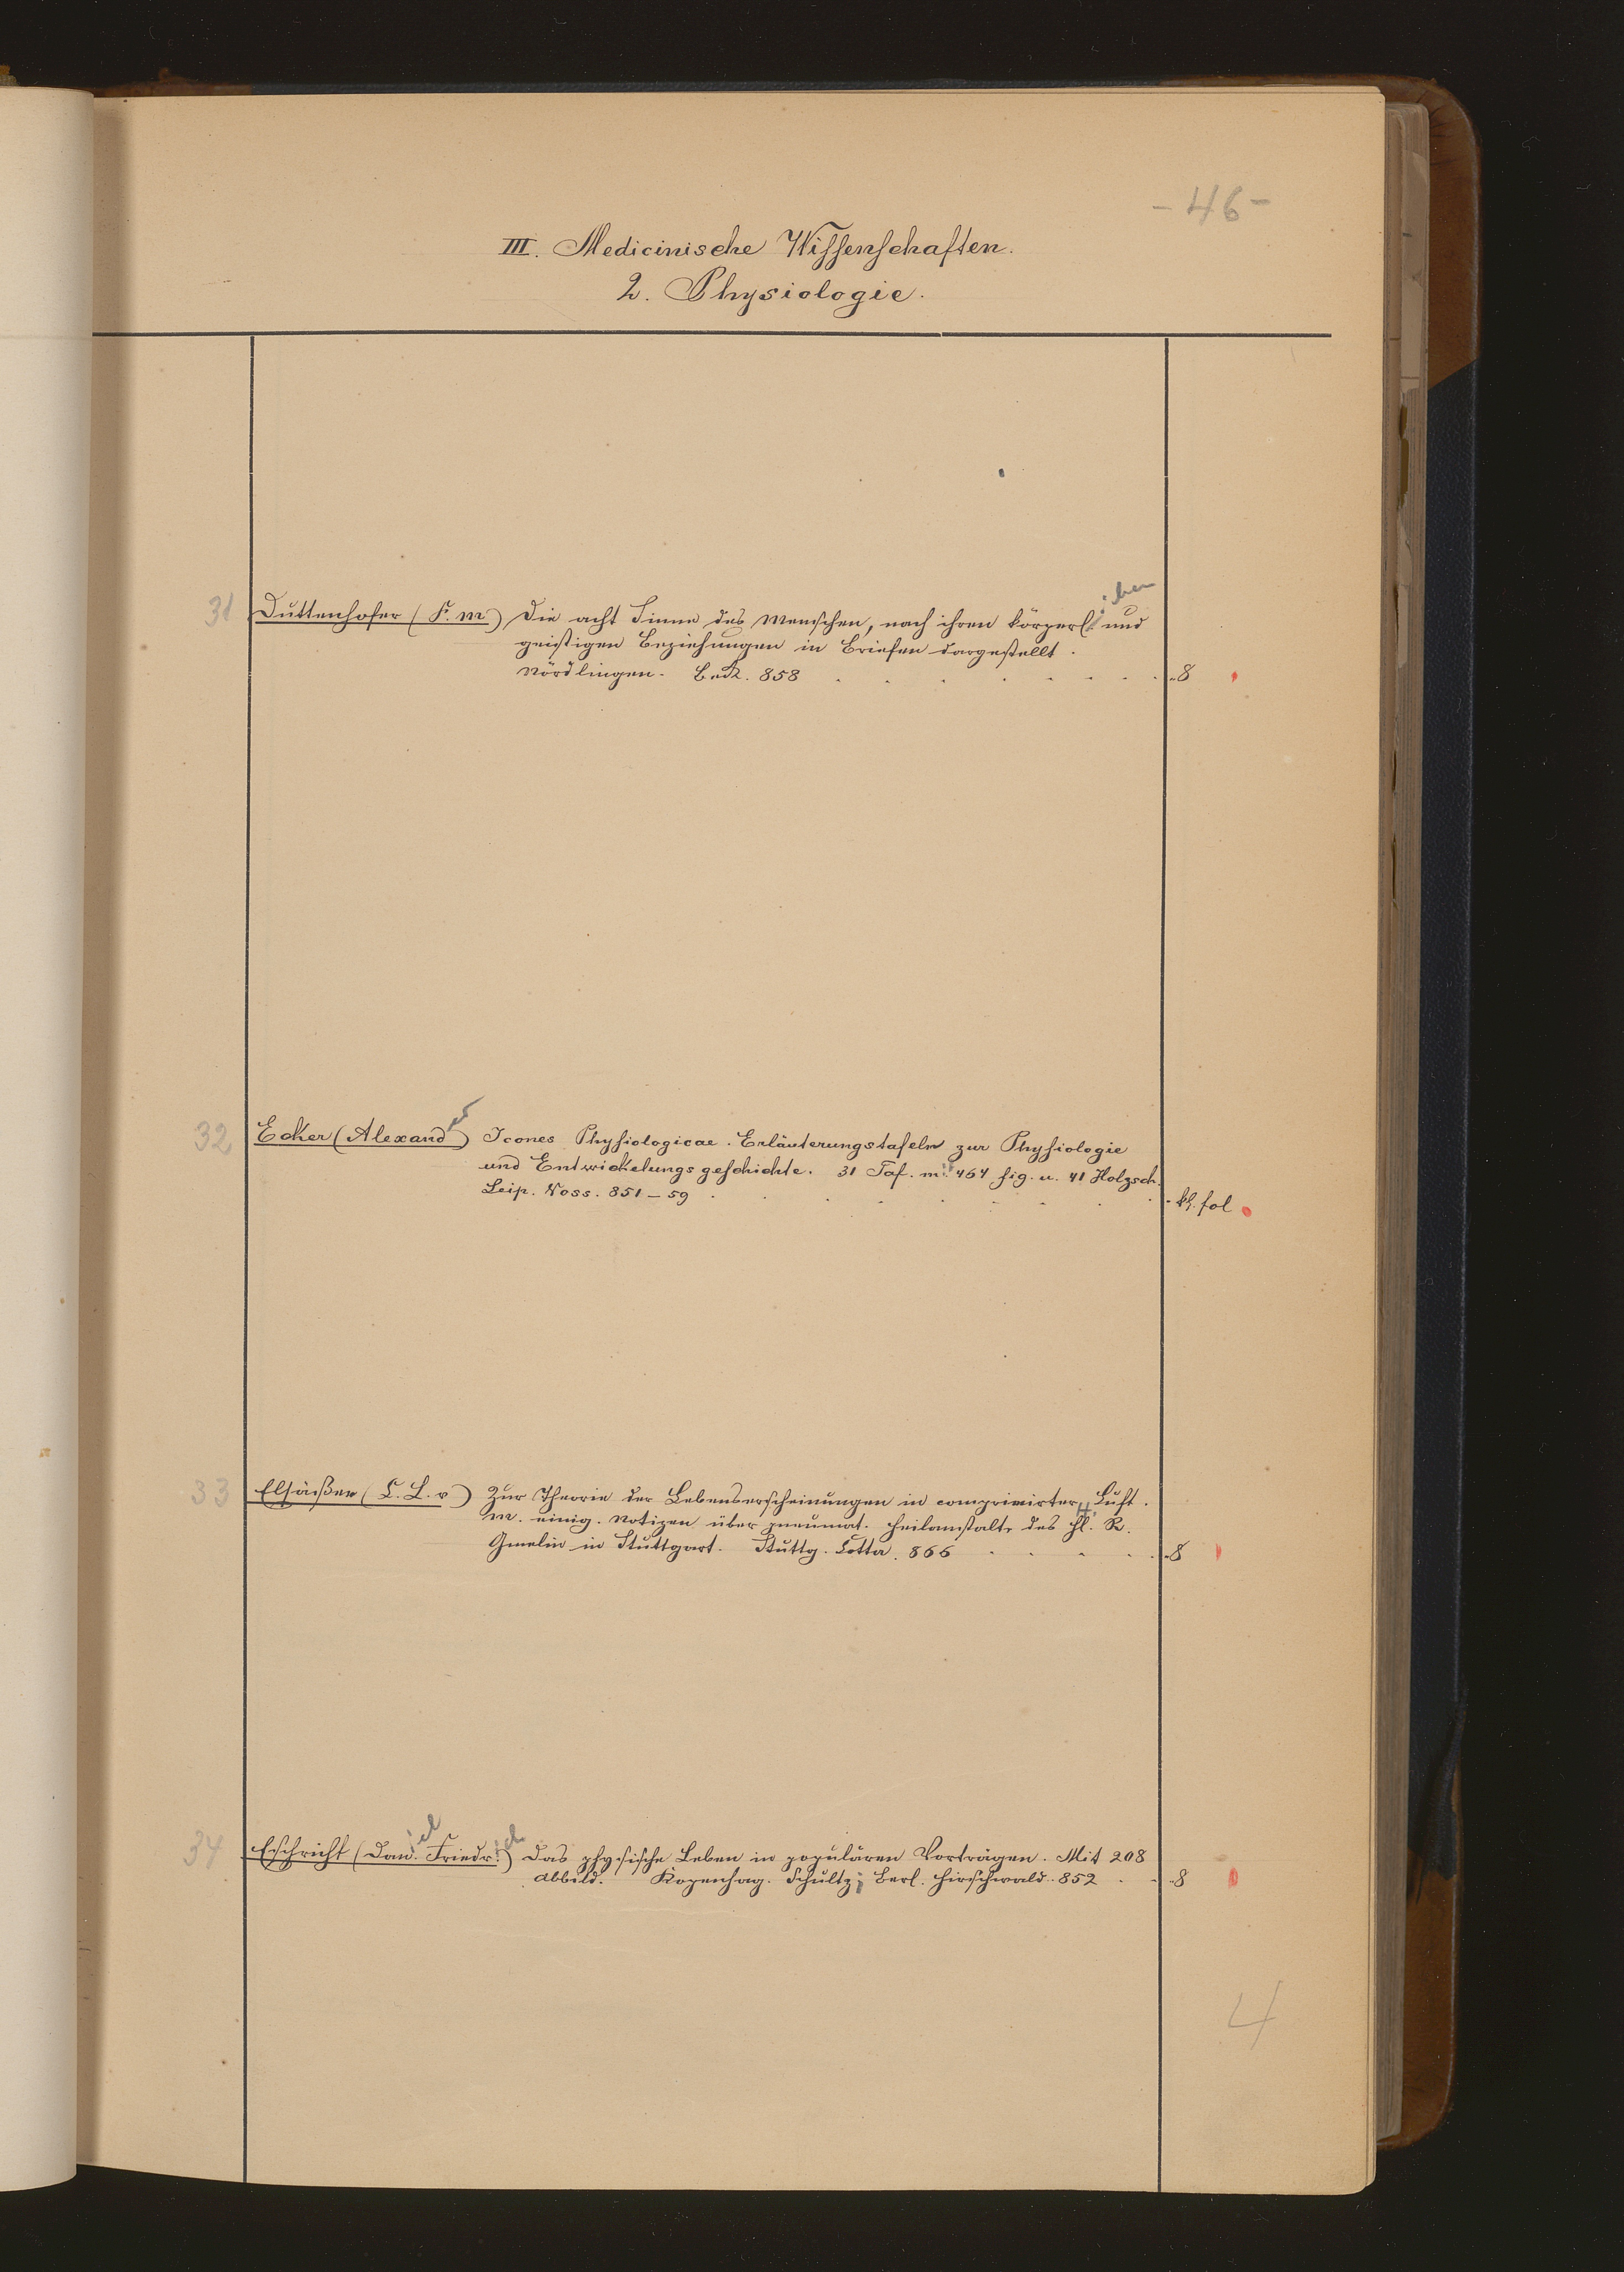 - 46 -
III. Medicinische Wissenschaften.
2. Physiologie.
31 Duttenhofer (F. M.) Die acht Sinne des Menschen, nach ihren körperlichen und
geistigen Beziehungen in Briefen dargestellt.
Nördlingen. Beck. 858 . . . . . . . . 8
32 Ecker (Alexander) Icones Physiologicae. Erläuterungstafeln zur Physiologie
und Entwickelungsgeschichte. 31 Taf. mit 464 fig. u. 41 Holzsch.
Leip. Voss. 851-59 . . . . . . . kl. fol
33 Elsäßer (C. L. v) Zur Theorie der Lebenserscheinungen in comprimirter Luft.
m. einig. Notizen über pneumat. Heilanstalt des Hl. R.
Gmelin in Stuttgart. Stuttg. Cotta. 866 . . . . . 8
34 Eschricht (Daniel Friedrich) Das physische Leben in populären Vorträgen. Mit 208
Abbild. Kopenhag. Schultz; Berl. Hirschwald. 852 . . 8
4